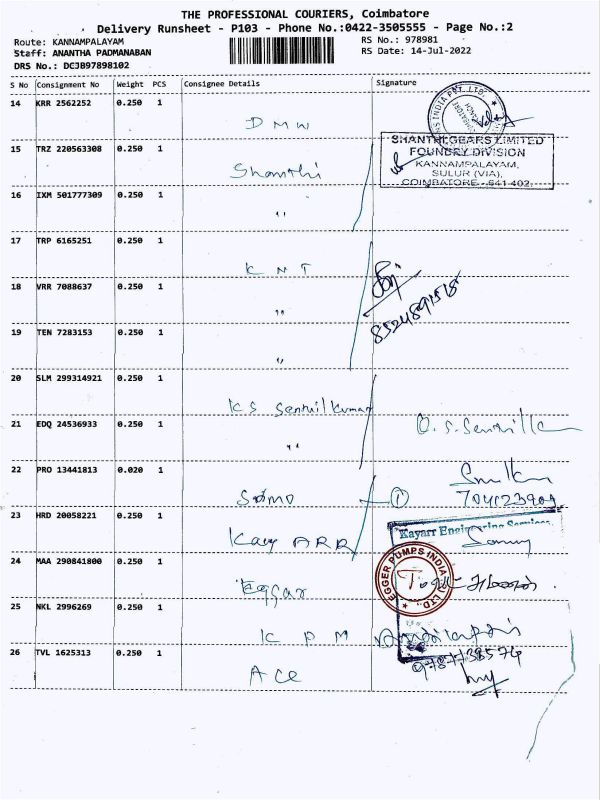 THE PROFESSIONAL COURIERS, Coimbatore
Delivery Runsheet - P103 - Phone No.:0422-3505555 - Page No.:2
Route: KANNAMPALAYAM
Staff: ANANTHA PADMANABAN
DRS No.: DCJB97898102
RS No.: 978981
RS Date: 14-Jul-2022
S No Consignment No Weight PCS Consignee Details Signature
14 KRR 2562252 0.250 1
DMW
SHANTHI GEARS LIMITED
FOUNDRY DIVISION
KANNAMPALAYAM,
SULUR (VIA),
COIMBATORE - 641 402.
15 TRZ 220563308 0.250 1
Shanthi
16 IXM 501777309 0.250 1
"
17 TRP 6165251 0.250 1
KNT
18 VRR 7088637 0.250 1
"
19 TEN 7283153 0.250 1
"
20 SLM 299314921 0.250 1
KS Senthilkumar
21 EDQ 24536933 0.250 1
"
22 PRO 13441813 0.020 1
1
23 HRD 20058221 0.250 1
Kay ARR
Kayarr Engineering Services
24 MAA 290841800 0.250 1
Eggar
EGGER PUMPS INDIA (P) LTD.
25 NKL 2996269 0.250 1
KPM
26 TVL 1625313 0.250 1
Ace